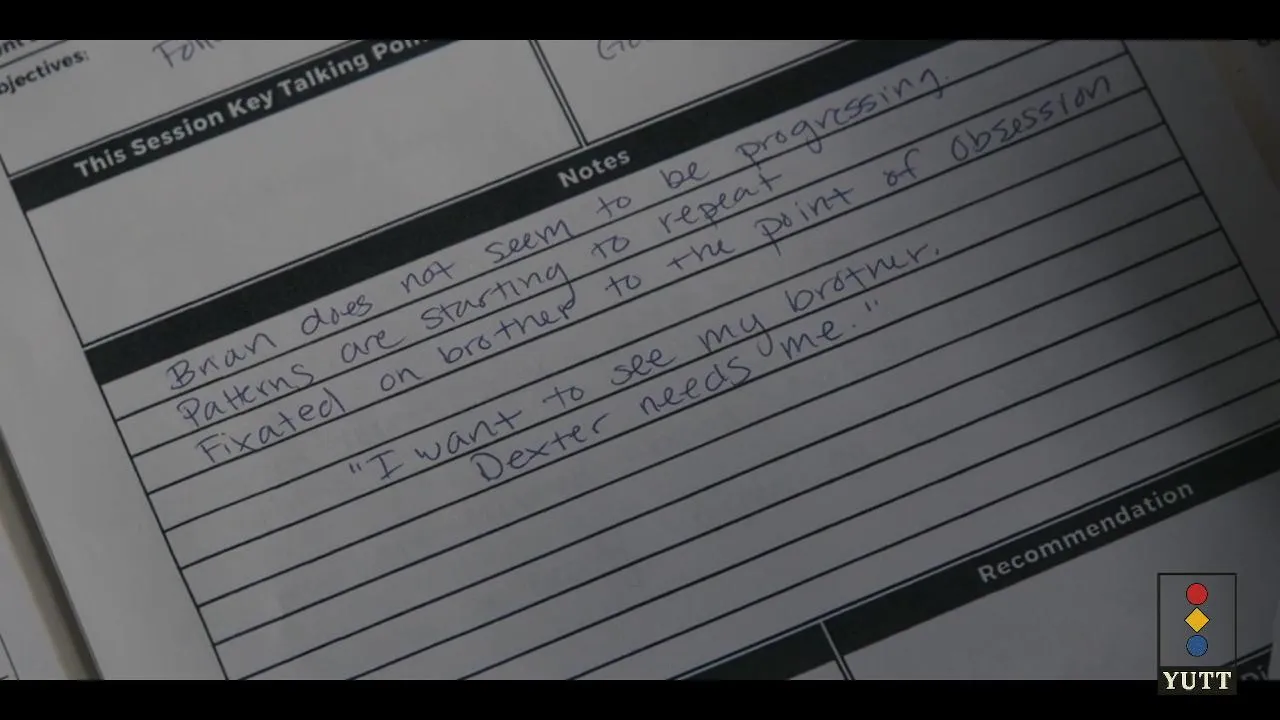 jectives:
This Session Key Talking
Notes
Brian does not seem to be progressing.
Patterns are starting to repeat
Fixated on brother to the point of obsession
"I want to see my brother.
Dexter needs me."
Recommendation
YUTT